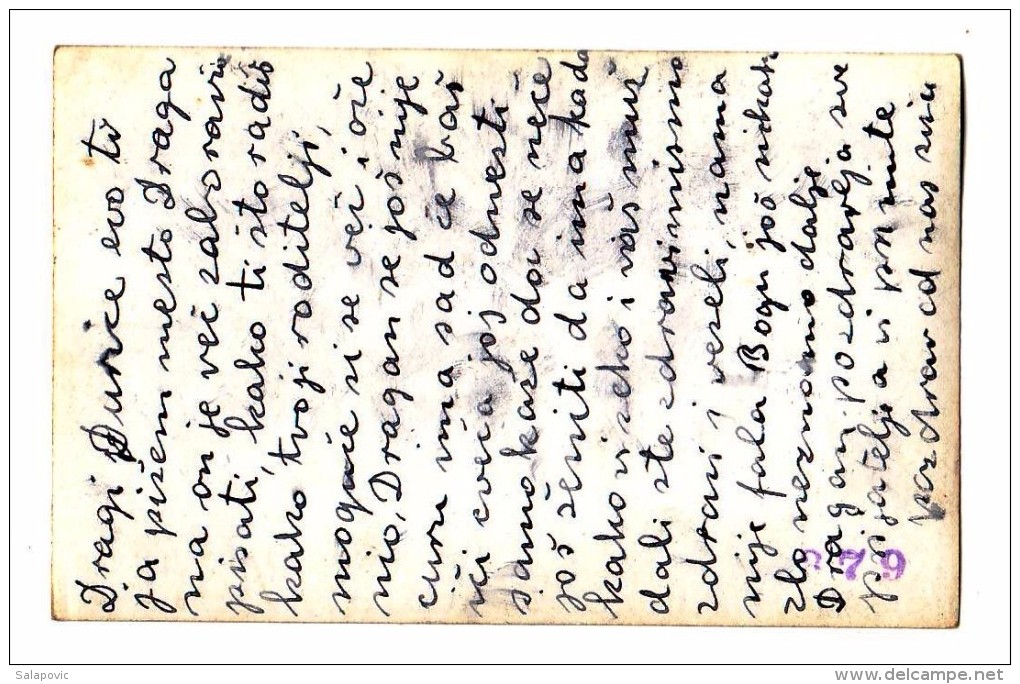 Dragi Đurice evo ti
ja pišem mesto Draga
na on je već zaboravio
pisati, kako ti što radiš
kako tvoji roditelji,
moguće si se već i ože
nio, Dragan se još nije
curu ima sad će baš
ići cveća joj odnesti
samo kaže da se neće
još ženiti da ima kada
kako i seko i vaš muž
dali ste zdravi mi smo
zdravi i veseli, nama
nije fala Bogu još nikako
zlo neznamo dalje
Dragan pozdravlja sve
prijatelja vi primite
pozdrav od nas sviu
679
Salapovic
www.delcampe.net